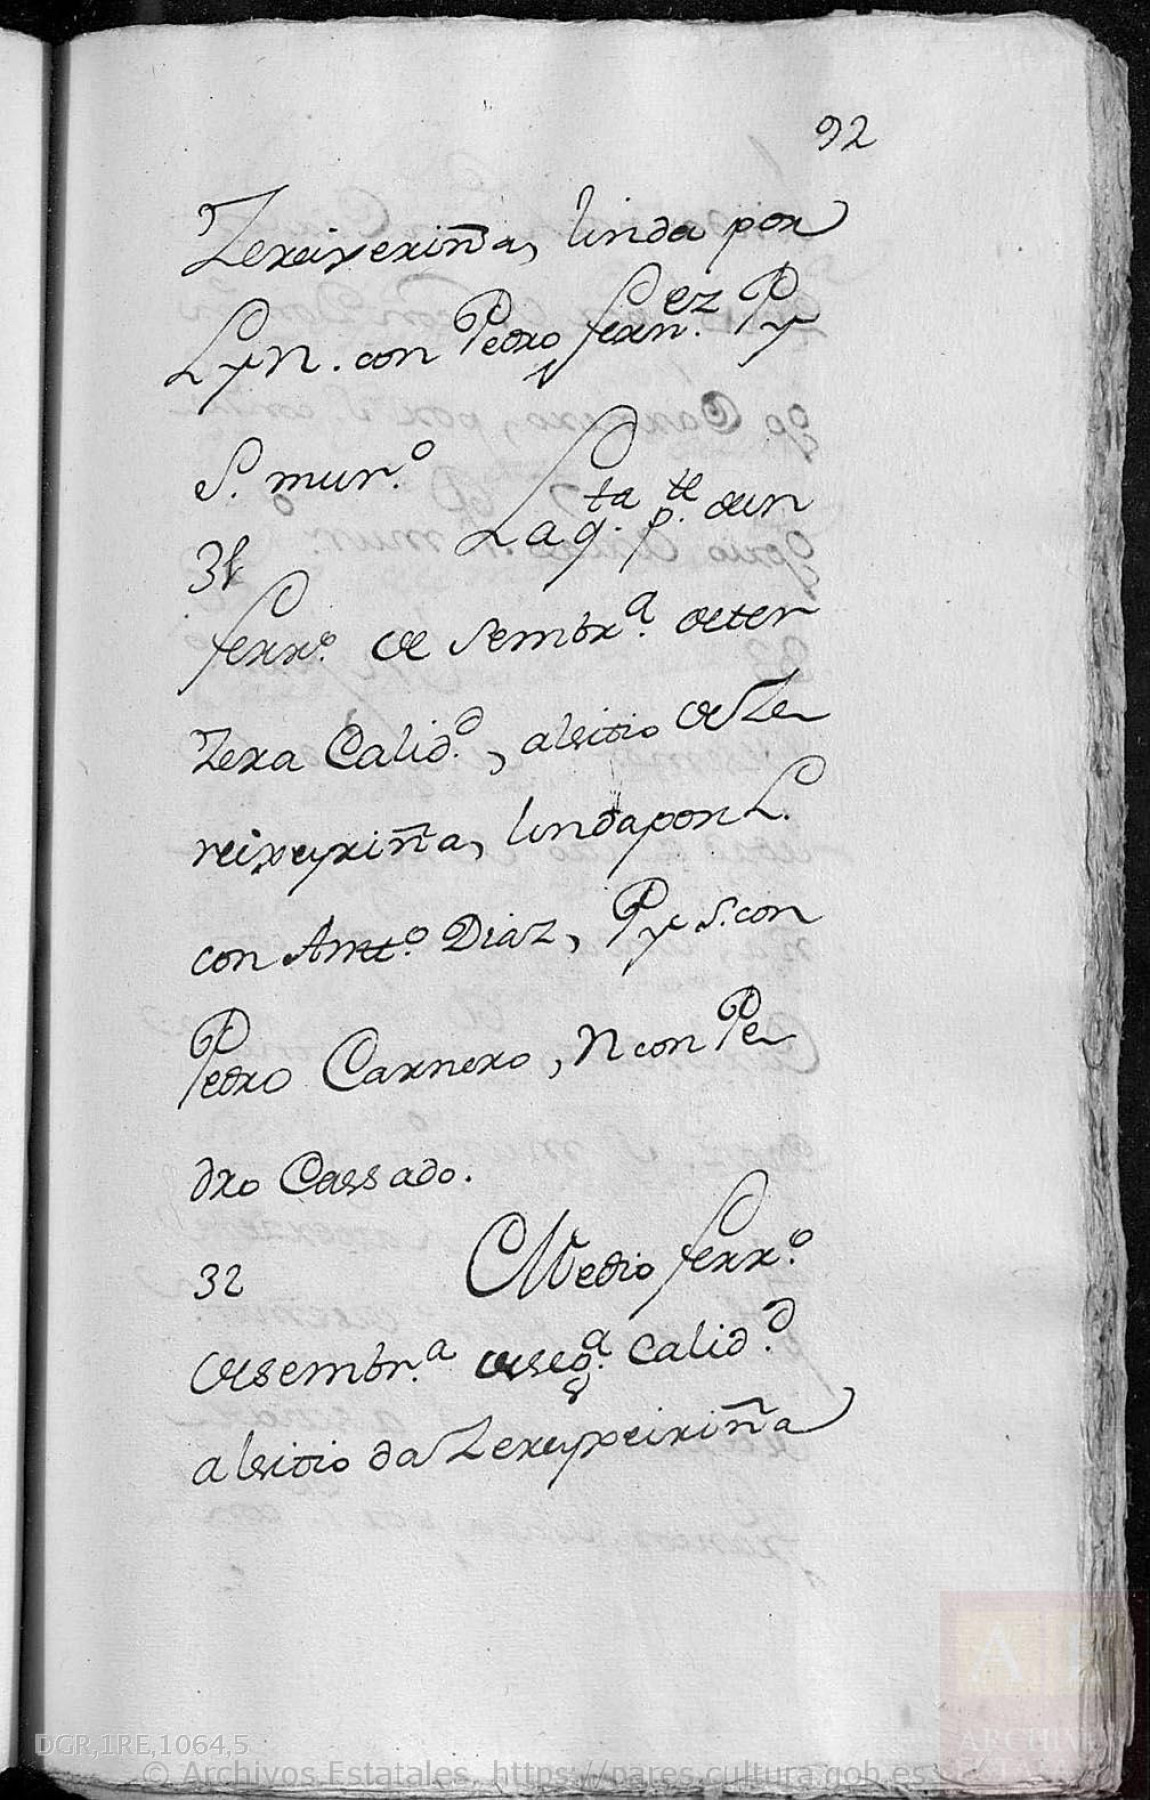 92
Zereixeriña, linda por
L y N. con Pedro fern.ez P y
S. mur.o
31 La q.ta p.te de un
ferr.o de sembr.a de ter
zera Calid.d, al sitio de Ze
reixeyriña, linda por L.
con Ant.o Diaz, P y S. con
Pedro Carnero, N con Pe
dro Cassado.
32 Medio ferr.o
de sembr.a de seg.a Calid.d
al sitio da Zereyxeiriña
DGR,1RE,1064,5
© Archivos Estatales, https://pares.cultura.gob.es